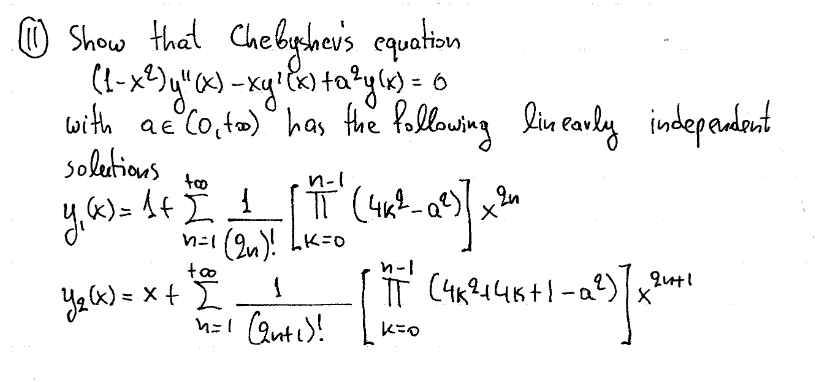 ⑪ Show that Chebyshev's equation
(1-x²)y"(x) - xy'(x) + a²y(x) = 0
with a∈(0,+∞) has the following linearly independent
solutions
y₁(x) = 1 + ∑_{n=1}^{+∞} 1/(2n)! [∏_{k=0}^{n-1} (4k²-a²)] x^{2n}
y₂(x) = x + ∑_{n=1}^{+∞} 1/(2n+1)! [∏_{k=0}^{n-1} (4k²+4k+1-a²)] x^{2n+1}